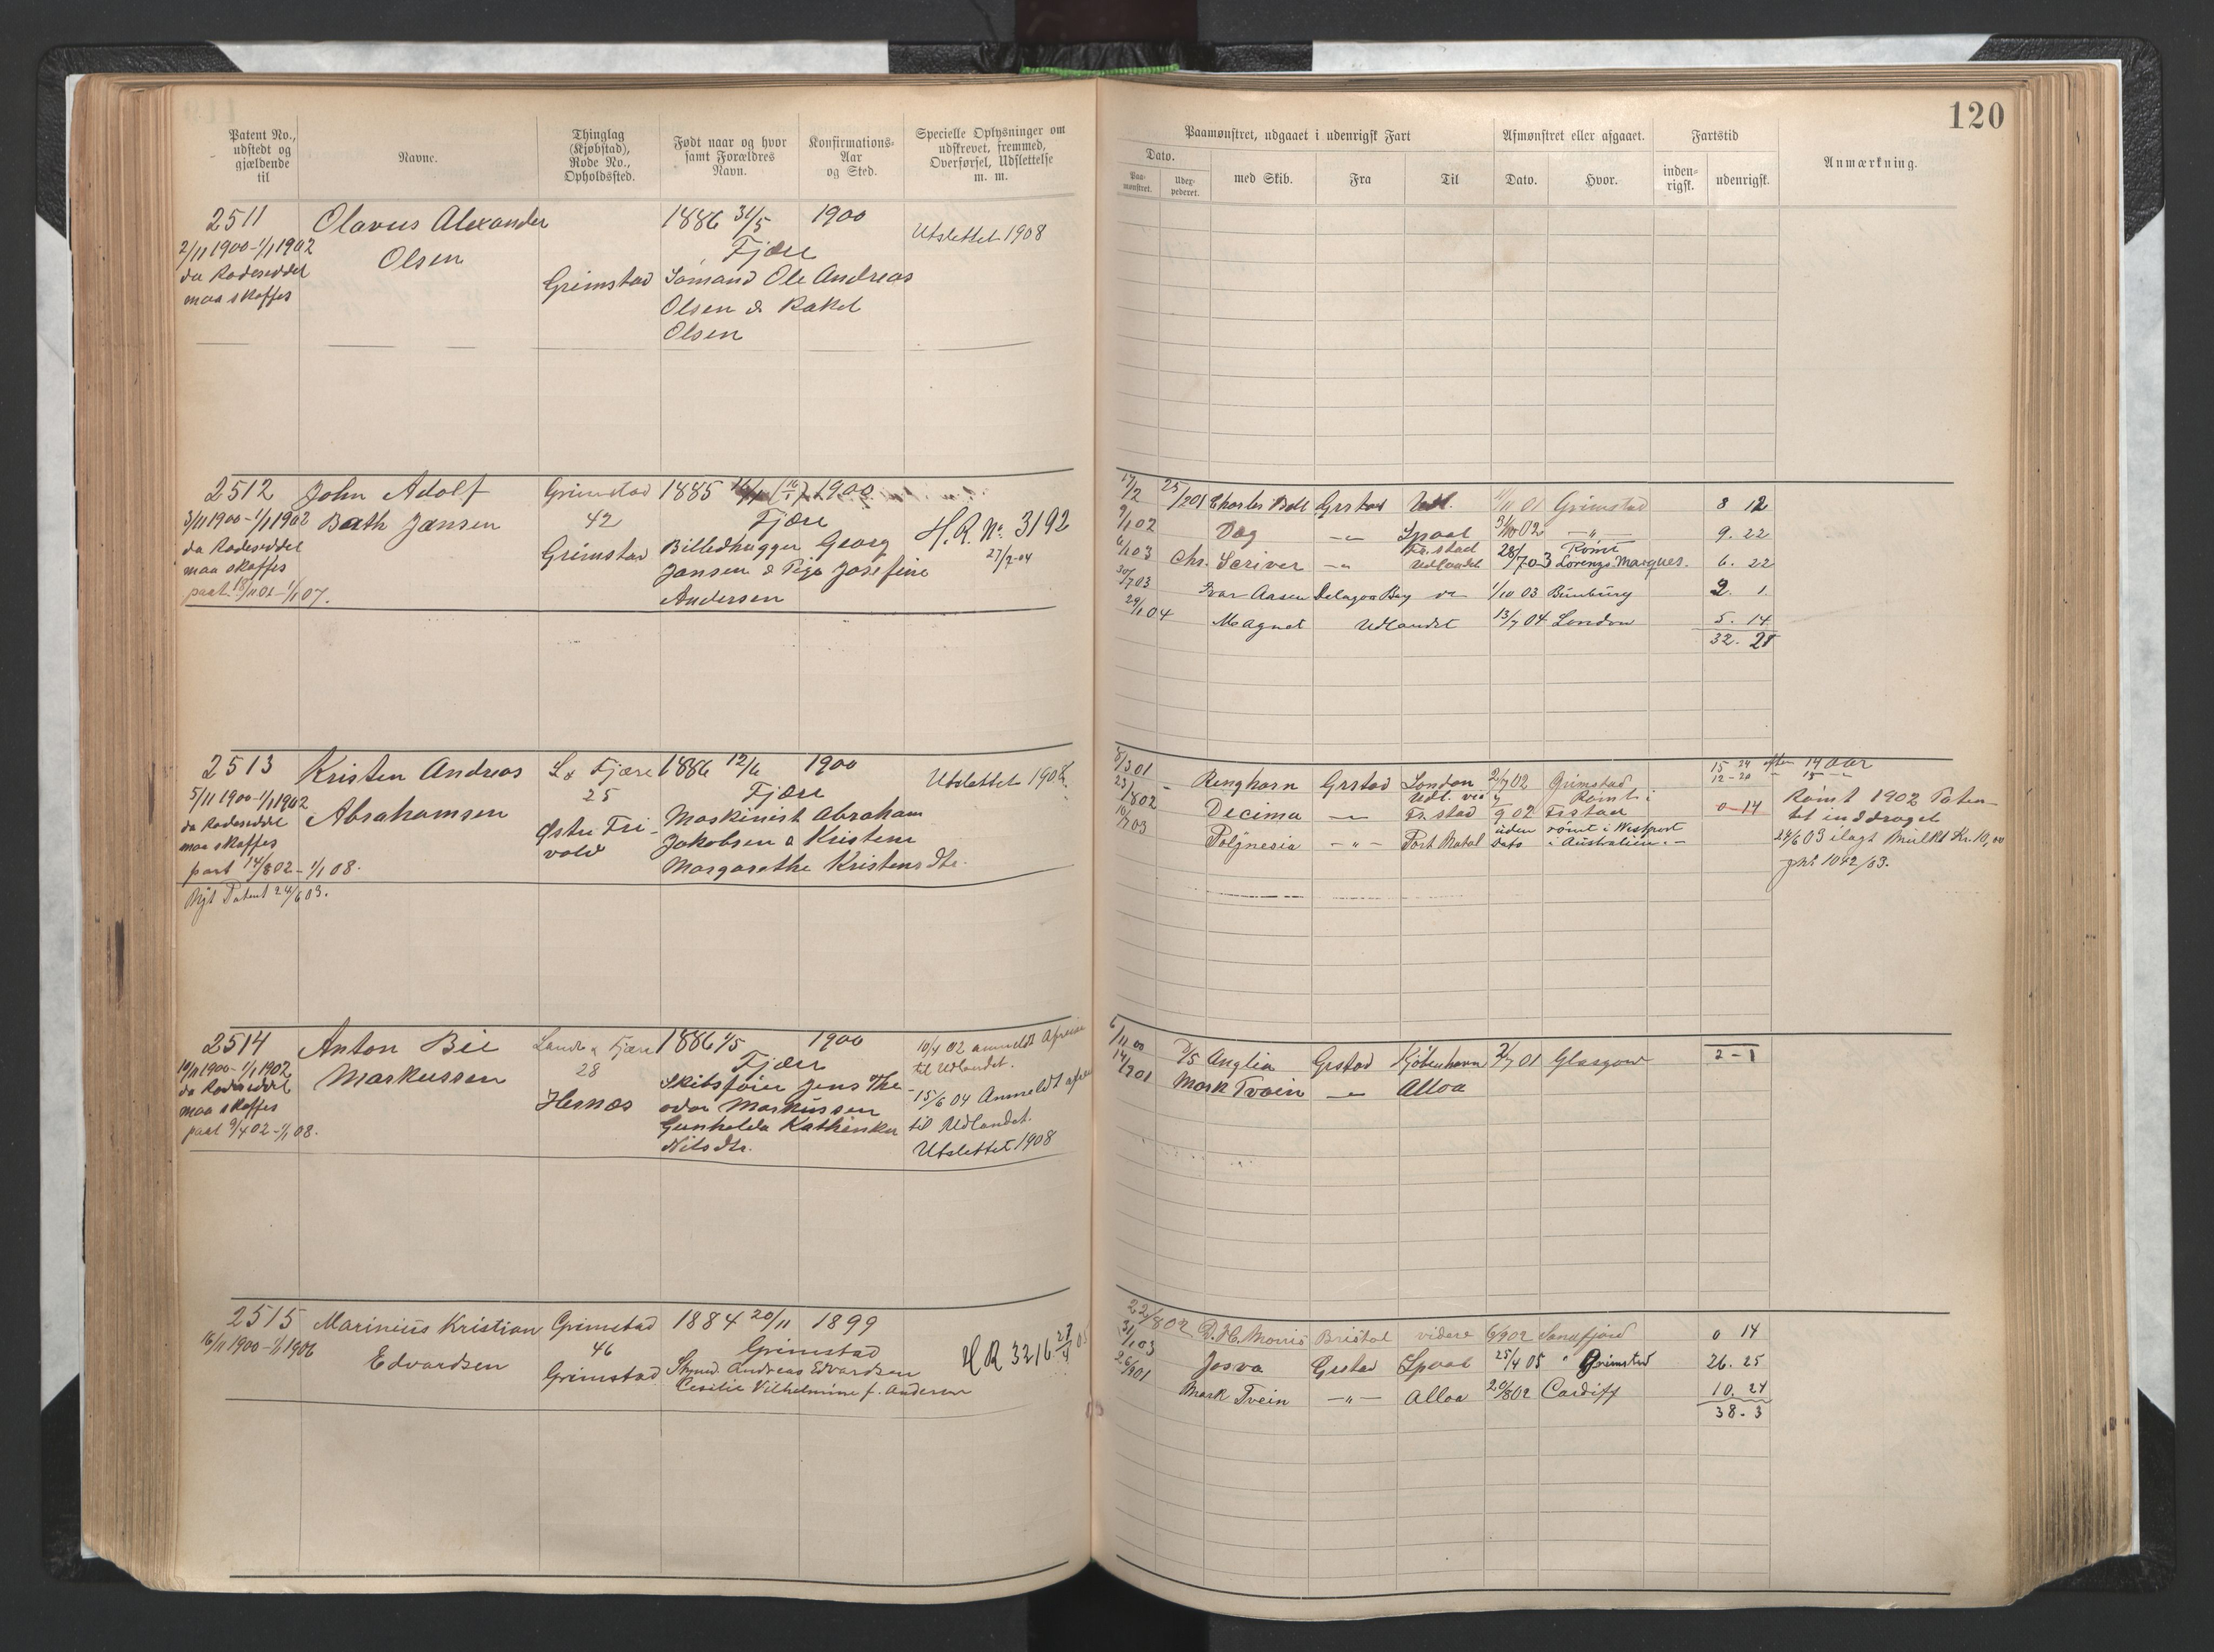 Patent No., udstedt og gjældende til
Navne.
Thinglag (Kjøbstad), Rode No., Opholdssted.
Født naar og hvor samt Forældres Navn.
Konfirmations-Aar og Sted.
Specielle Oplysninger om udskrevet, fremmed, Overførsel, Udslettelse m. m.
2511 Olavus Alexander 1886 31/5 1900
2/11 1900 - 1/1 1902 Olsen Fjære Utslettet 1908
da Rodeseddel
maa skaffes Grimstad Sømand Ole Andreas
Olsen & Rakel
Olsen
2512 John Adolf Grimstad 1885 (16/1) 1900
3/11 1900 - 1/1 1902 Bath Jansen 42 Fjære H. R. No. 3192
da Rodeseddel Grimstad Billedhugger Georg 27/2-04
maa skaffes Jansen & Josefine
paat. 1/1 07. Andersen
2513 Kristen Andreas L & Fjære 1886 12/6 1900 Utslettet 1908
5/11 1900 - 1/1 1902 Abrahamsen 25 Fjære
da Rodeseddel Østre Fri- Maskinist Abraham
maa skaffes vold Jakobsen & Kristene
paat 14/8 02 - 1/1 08. Margarethe Kristensdtr.
Nyt Patent 24/6 03.
2514 Anton Bie Fjære 1886 1900 10/4 02 anmeldt Afreise
10/11 1900 - 1/1 1902 Markussen 28 Fjære til Udlandet.
da Rodeseddel Skibsfører Jens The- 15/6 04 Anmeldt
maa skaffes Hesnes odor Markussen til Udlandet.
paat 9/4 02 - 1/1 08. Gunhilda Kathinka Utslettet 1908
Nilsdtr.
2515 Marinius Kristian Grimstad 1884 20/11 1899
16/11 1900 - 1/1 1906 Edvardsen 46 Grimstad H R 3216
Grimstad Smed Andreas Edvardsen
Cesilie Vilhelmine f. Andersen
120
Paamønstret, udgaaet i udenrigsk Fart
Afmønstret eller afgaaet.
Fartstid
Anmærkning.
Dato.
Paa-mønstret. Udex-pederet. med Skib. Fra Til Dato. Hvor. inden-rigsk. udenrigsk.
17/2 25/2 01 Charles Ball Grstad Udl. 11/11 01 Grimstad 8 12
9/1 02 Dag -"- Spaal 02 -"- 9. 22
6/1 03 Chr. Scriver -"- Fr.stad Udlandet 28/7 03 Rømt Lorenzo Marques. 6. 22
30/7 03 Ivar Aasen Delagoa Bay 1/10 03 Bunbury 2. 1.
29/1 04 Magnet Udlandet 13/7 04 London 5. 14
32. 21
8/3 01 Ringhorn Grstad London 2/7 02 Grimstad 15 24 efter 14 aar
12-20 " 15 -"-
23/8 02 Decima -"- Udl. via Fr.stad 9 02 Rømt i Fr.stad 0-14 Rømt 1902 Paten-
tet inddraget
10/7 03 Polynesia -"- Port Natal uden dato rømt i Westport i Australien.- 24/6 03 ilagt Mulkt Kr. 10,00
1042/03.
6/11 00 D/S Anglia Grstad Kjøbenhavn 01 Glasgow 2-1
14/2 01 Mark Tvain -"- Alloa
22/8 02 D. H. Morris Bristol videre 02 Sandfjord 0 14
21/1 03 Josva Grstad Spaal 25/4 05 Grimstad 26. 25
26/9 01 Mark Tvein -"- Alloa 20/8 02 Cardiff 10. 24
38. 3